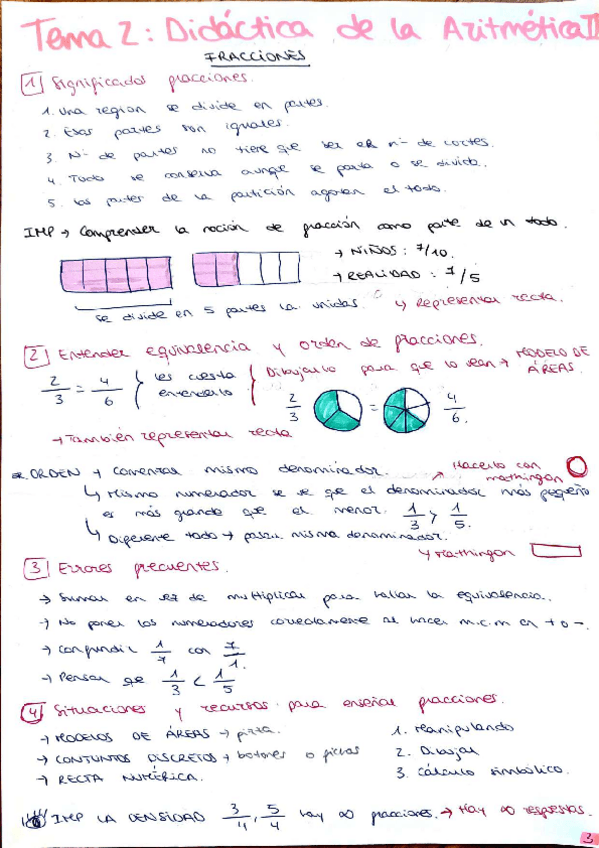 Tema 2: Didáctica de la Aritmética II
FRACCIONES
1 Significados fracciones.
1. Una region se divide en partes.
2. Esas partes son iguales.
3. Nº de partes no tiene que ser el nº de cortes.
4. Todo se conserva aunque se parta o se divida.
5. Las partes de la partición agotan el todo.
IMP → Comprender la noción de fracción como parte de un todo.
→ NIÑOS: 7/10.
→ REALIDAD: 7/5
se divide en 5 partes la unidad.
↳ Representar recta.
2 Entender equivalencia y orden de fracciones.
2/3 = 4/6 les cuesta entenderlo
Dibujarlo para que lo vean → MODELO DE ÁREAS.
2/3 = 4/6.
→ También representar recta
ORDEN → Comentar mismo denominador.
→ Hacerlo con mathingon
↳ Mismo numerador se ve que el denominador más pequeño
es más grande que el menor. 1/3 > 1/5.
↳ Diferente todo → pasar mismo denominador.
↳ Mathingon
3 Errores frecuentes.
→ Sumar en vez de multiplicar para hallar la equivalencia.
→ No poner los numeradores correctamente al hacer m.c.m en + o -.
→ Confundir 1/7 con 7/1.
→ Pensar qe 1/3 < 1/5
4 Situaciones y recursos para enseñar fracciones.
→ MODELOS DE ÁREAS → pizza.
→ CONJUNTOS DISCRETOS → botones o fichas
→ RECTA NUMÉRICA.
1. Manipulando
2. Dibujar
3. Cálculo simbólico.
IMP LA DENSIDAD 3/4, 5/4 hay ∞ fracciones. → Hay ∞ respuestas.
3